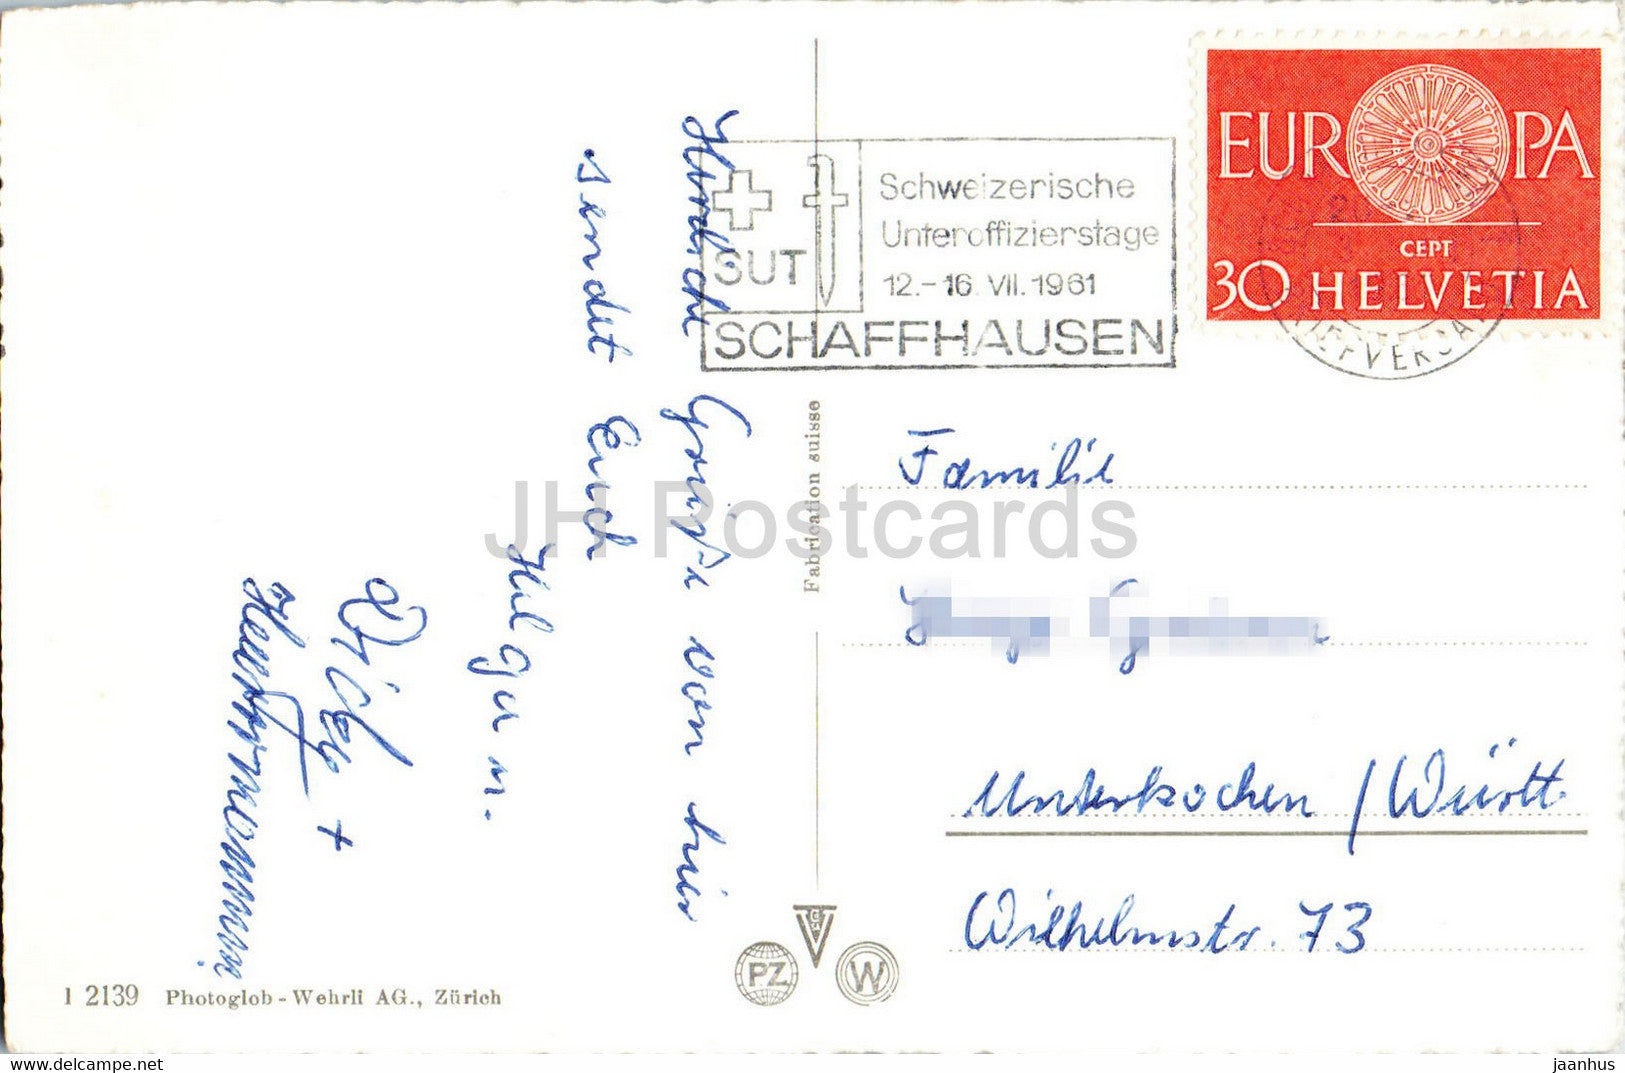 Herzliche Grüße von hier
sendet Euch
Helga m.
+
EUROPA
CEPT
30 HELVETIA
SUT
Schweizerische
Unteroffizierstage
12.-16. VII. 1961
SCHAFFHAUSEN
BRIEFVERSAND
Fabrication suisse
Familie
Unterkochen / Württ.
Wilhelmstr. 73
PZ
W
1 2139 Photoglob-Wehrli AG., Zürich
JH Postcards
www.delcampe.net
jaanhus